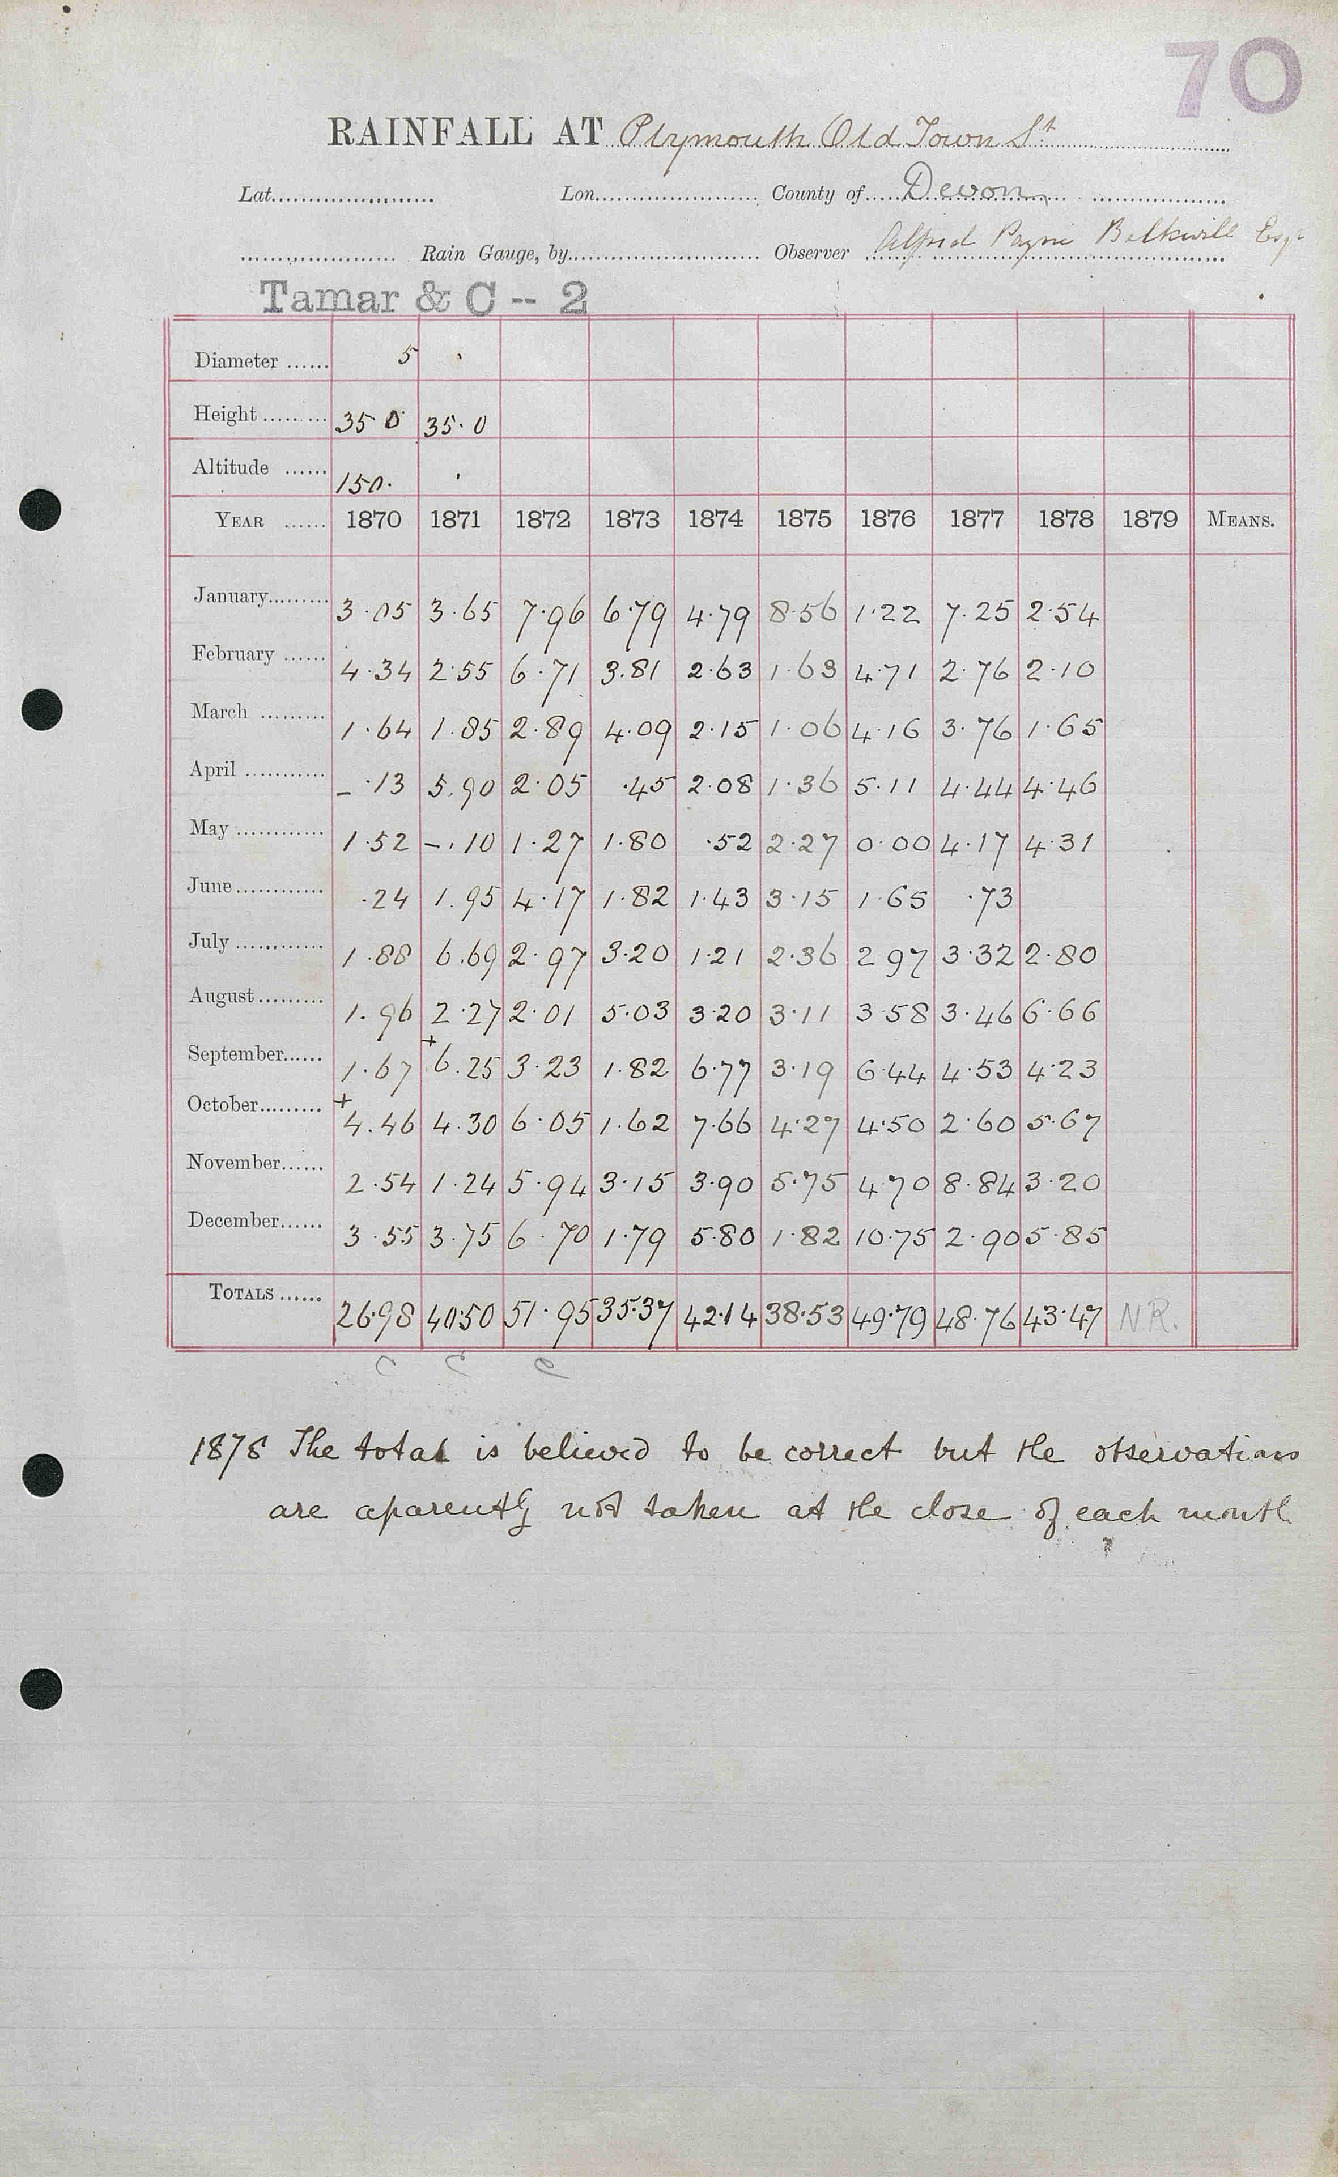 70
RAINFALL AT Plymouth Old Town St
Lat. Lon. County of Devon
Rain Gauge, by Observer Alfred Payne Balkwill Esqr
Tamar & C -- 2
Diameter 5
Height 35 0 35.0
Altitude 150.
YEAR 1870 1871 1872 1873 1874 1875 1876 1877 1878 1879 MEANS.
January 3.05 3.65 7.96 6.79 4.79 8.56 1.22 7.25 2.54
February 4.34 2.55 6.71 3.81 2.63 1.63 4.71 2.76 2.10
March 1.64 1.85 2.89 4.09 2.15 1.06 4.16 3.76 1.65
April - .13 5.90 2.05 .45 2.08 1.36 5.11 4.44 4.46
May 1.52 -.10 1.27 1.80 .52 2.27 0.00 4.17 4.31
June .24 1.95 4.17 1.82 1.43 3.15 1.65 .73
July 1.88 6.69 2.97 3.20 1.21 2.36 2 97 3.32 2.80
August 1.96 2.27 2.01 5.03 3.20 3.11 3.58 3.46 6.66
September 1.67 +6.25 3.23 1.82 6.77 3.19 6.44 4.53 4.23
October +4.46 4.30 6.05 1.62 7.66 4.27 4.50 2.60 5.67
November 2.54 1.24 5.94 3.15 3.90 5.75 4.70 8.84 3.20
December 3.55 3.75 6.70 1.79 5.80 1.82 10.75 2.90 5.85
TOTALS 26.98 40.50 51.95 35.37 42.14 38.53 49.79 48.76 43.47 N.R.
c c c
1878 The total is believed to be correct but the observations
are aparently not taken at the close of each month